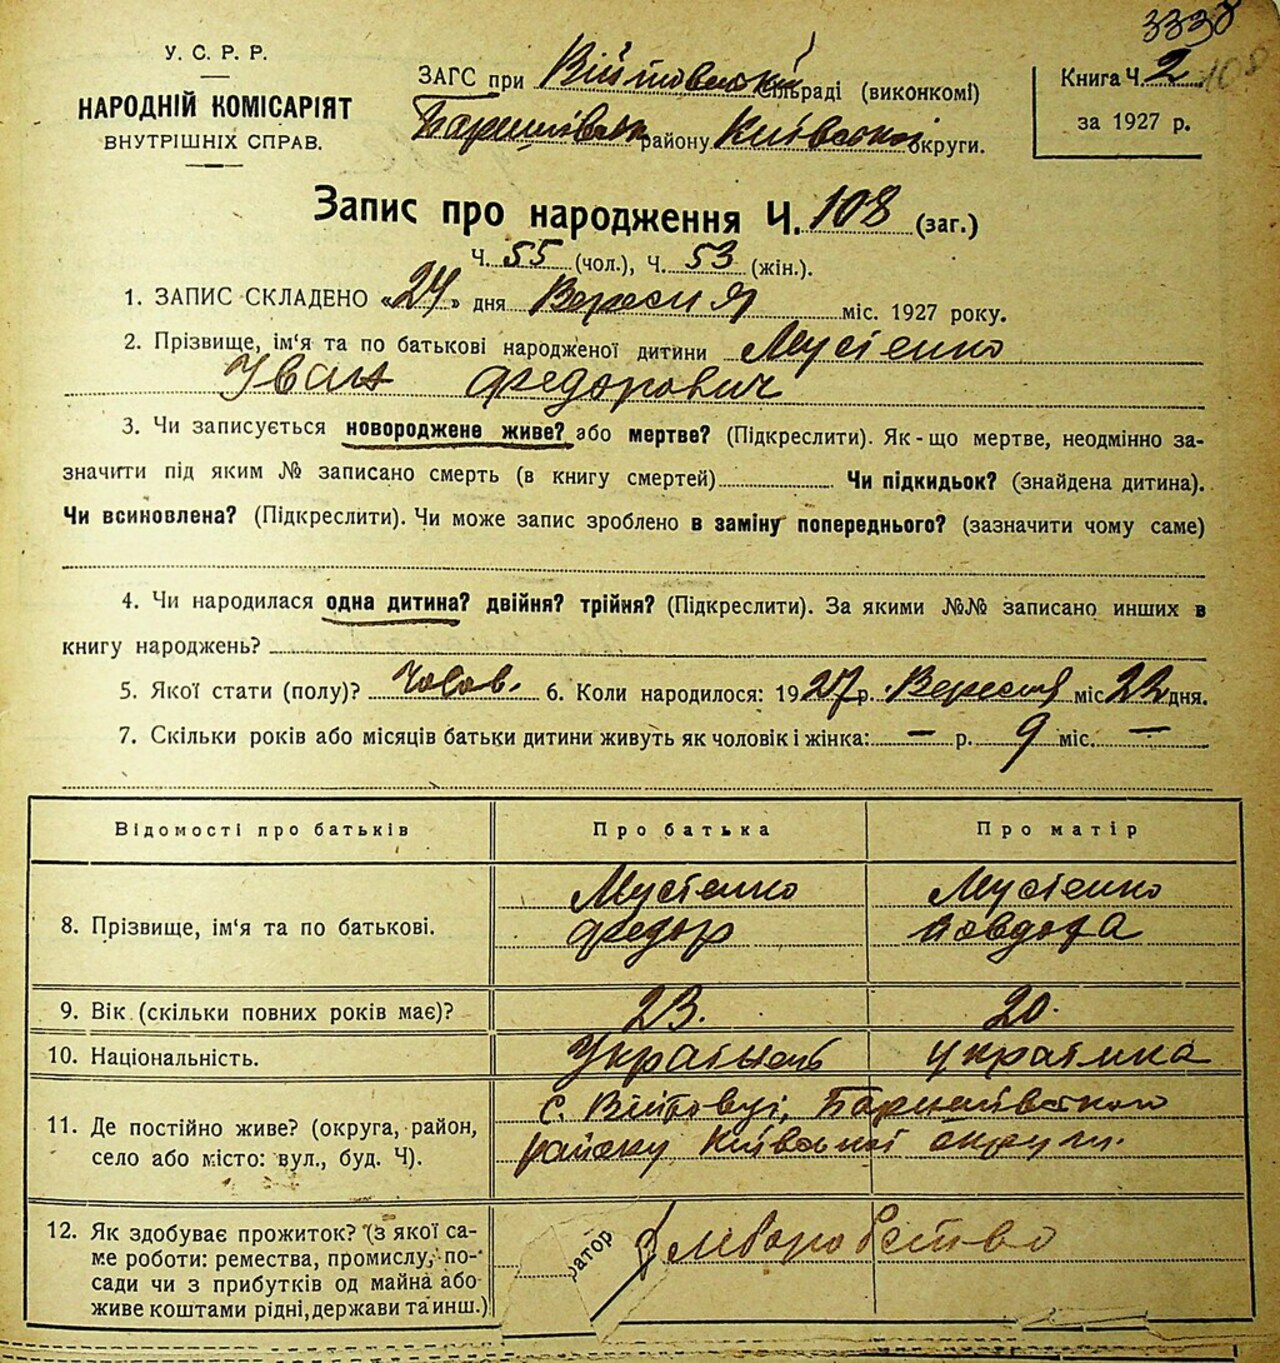 3338
У. С. Р. Р.
НАРОДНІЙ КОМІСАРІЯТ
ВНУТРІШНІХ СПРАВ.
ЗАГС при Війтовській сільраді (виконкомі)
Баришівськ району Київської округи.
Книга Ч. 2 108
за 1927 р.
Запис про народження Ч. 108 (заг.)
Ч. 55 (чол.), Ч. 53 (жін.).
1. ЗАПИС СКЛАДЕНО «24» дня Вересня міс. 1927 року.
2. Прізвище, ім'я та по батькові народженої дитини Мусієнко
Іван Федорович
3. Чи записується новороджене живе? або мертве? (Підкреслити). Як-що мертве, неодмінно за-
значити під яким № записано смерть (в книгу смертей) Чи підкидьок? (знайдена дитина).
Чи всиновлена? (Підкреслити). Чи може запис зроблено в заміну попереднього? (зазначити чому саме)
4. Чи народилася одна дитина? двійня? трійня? (Підкреслити). За якими №№ записано инших в
книгу народжень?
5. Якої стати (полу)? Чолов. 6. Коли народилося: 1927 р. Вересня міс 22 дня.
7. Скільки років або місяців батьки дитини живуть як чоловік і жінка: — р. 9 міс. —
Відомості про батьків Про батька Про матір
8. Прізвище, ім'я та по батькові. Мусієнко Мусієнко
Федор Повдоха
9. Вік (скільки повних років має)? 23. 20.
10. Національність. Українець Українка
11. Де постійно живе? (округа, район,
село або місто: вул., буд. Ч).
с. Війтовці, Баришівського
району Київської округи.
12. Як здобуває прожиток? (з якої са-
ме роботи: ремества, промислу, по-
сади чи з прибутків од майна або
живе коштами рідні, держави та инш.)
ратор
Хлеборобство